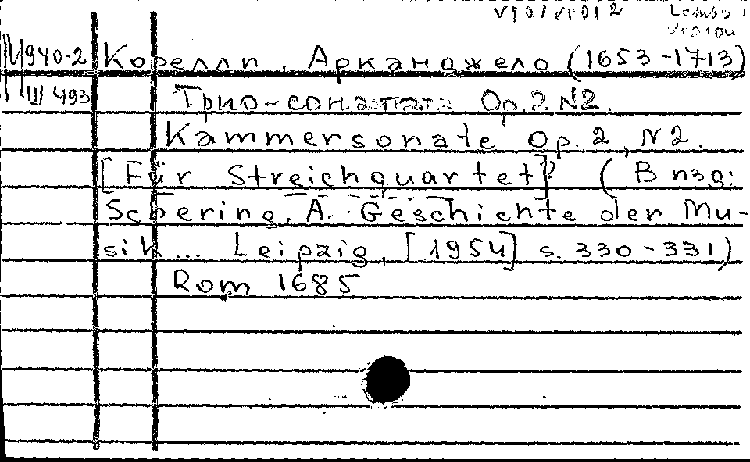 Ц940-2 Корелли, Арканджело (1653-1713)
III 493 Трио-соната Op. 2 N2.
Kammersonate Op. 2, N2.
[Für Streichquartet] (В изд:
Schering, A. Geschichte der Mu-
sik... Leipzig, [1954] s. 330-331)
Rom 1685